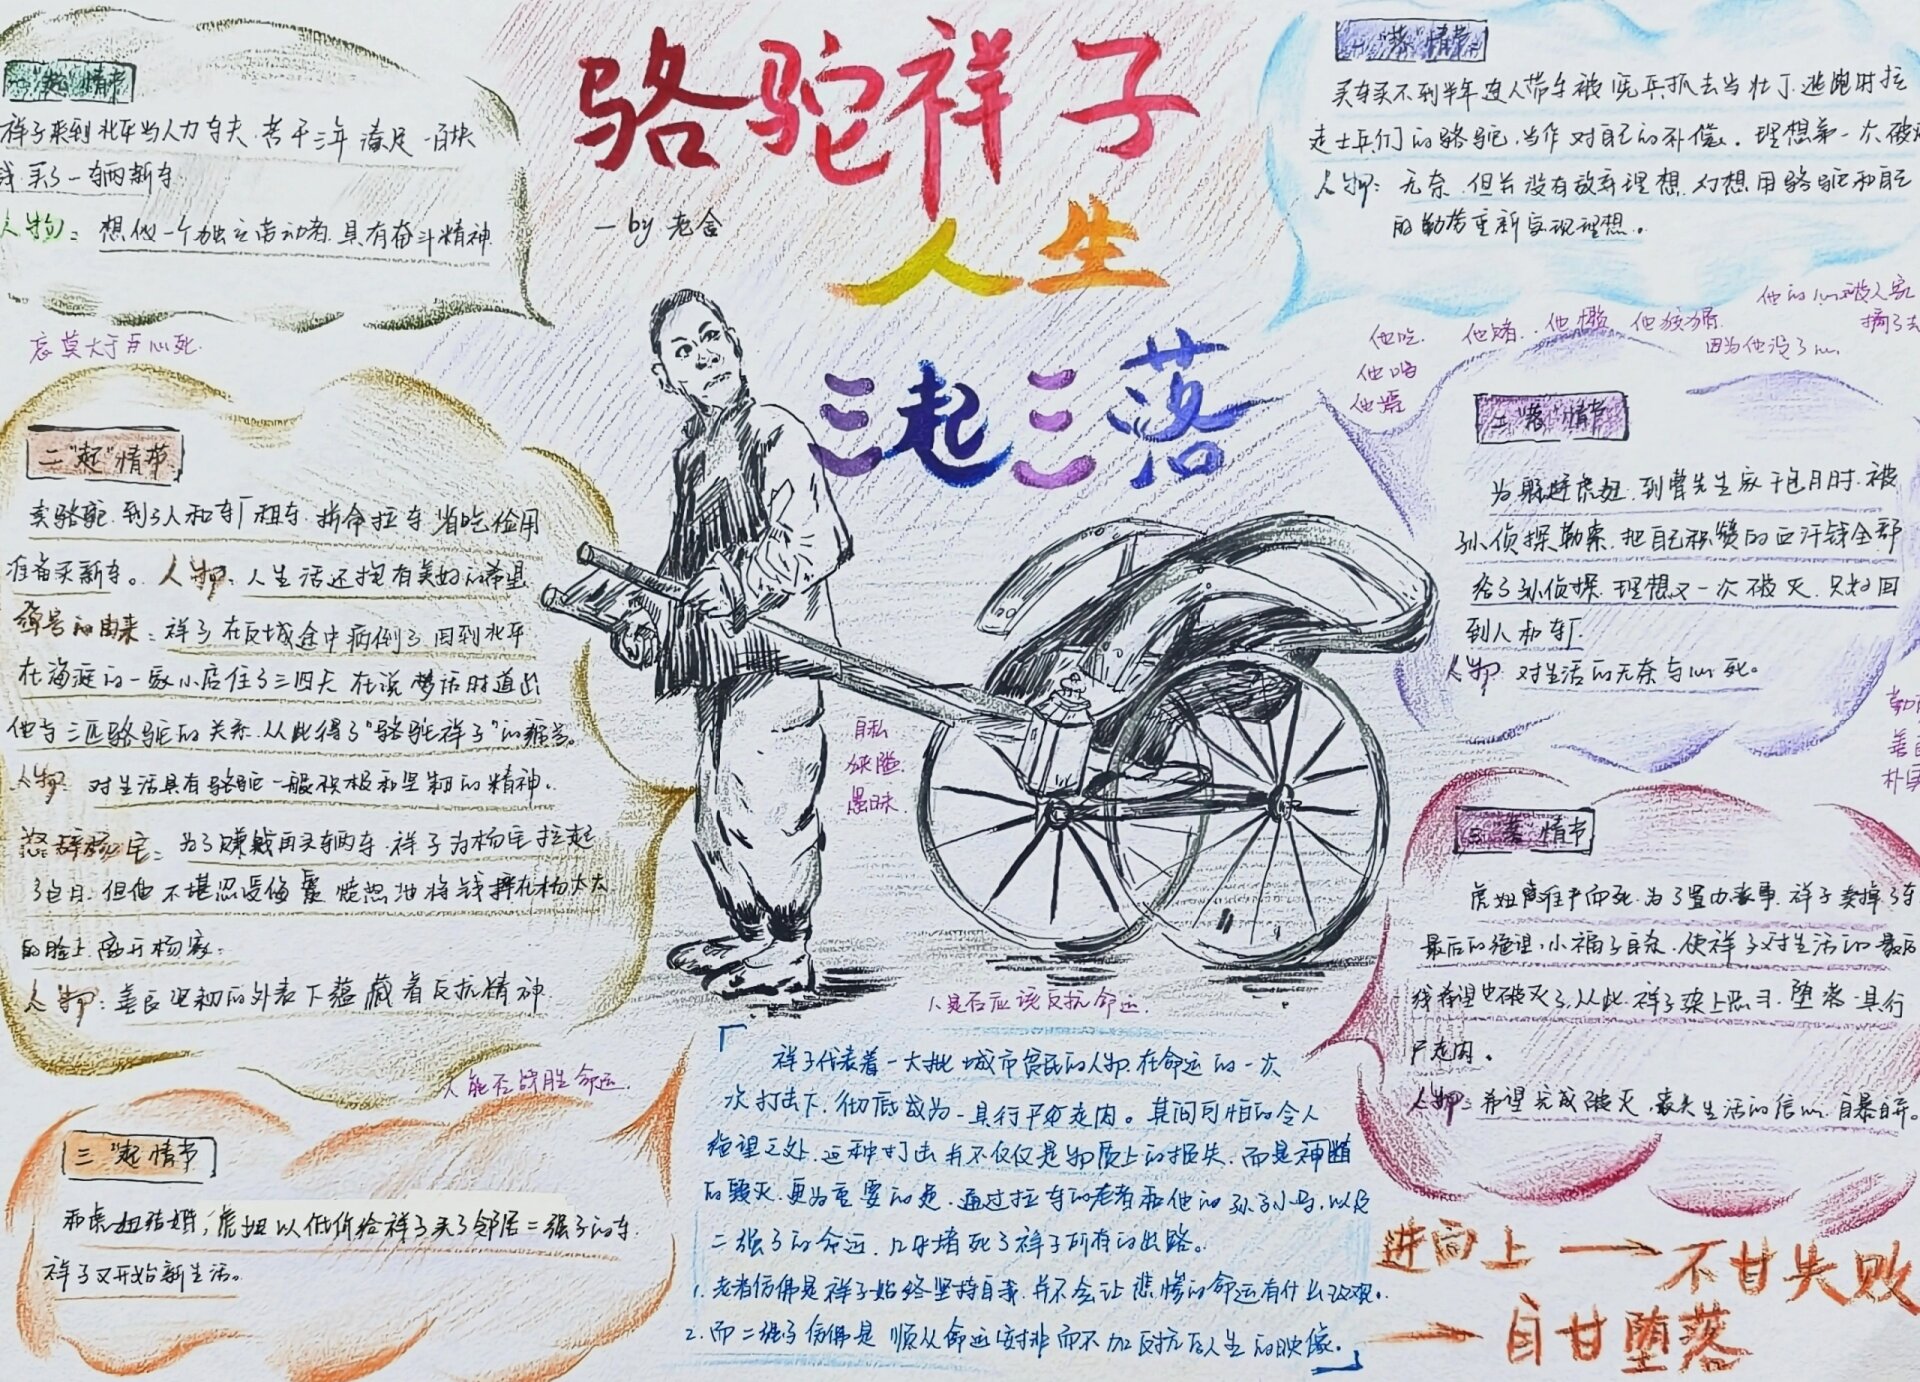 骆驼祥子
—by 老舍
人生
三起三落
一"起"情节
祥子来到北平当人力车夫,苦干三年,凑足一百块
钱,买了一辆新车
人物:想做一个独立劳动者,具有奋斗精神
哀莫大于心死
二"起"情节
卖骆驼,到了人和车厂租车,拚命拉车,省吃俭用
准备买新车。人物:人生活还抱有美好的希望
绰号的由来:祥子在反城途中病倒了,回到北平
在海淀的一家小店住了三四天,在说梦话时道出
他与三匹骆驼的关系,从此得了"骆驼祥子"的称号。
人物:对生活具有骆驼一般积极和坚韧的精神。
怒辞杨宅:为了赚钱再买辆车,祥子为杨宅拉起
了包月,但他不堪忍受侮辱,愤怒地将钱摔在杨太太
的脸上,离开杨家;
人物:善良坚韧的外表下蕴藏着反抗精神
人能否战胜命运
三"起"情节
和虎妞结婚,虎妞以低价给祥子买了邻居二强子的车,
祥子又开始新生活。
一"落"情节
买车买不到半年,连人带车被宪兵抓去当壮丁,逃跑时拉
走士兵们的骆驼,当作对自己的补偿。理想第一次破灭
人物:无奈,但并没有放弃理想,幻想用骆驼和自己
的勤劳重新实现理想。
他吃 他赌 他懒 他狡猾
他喝
他嫖
因为他没了心
他的心被人家
摘了去
二"落"情节
为躲避虎妞,到曹先生家干包月时,被
孙侦探勒索,把自己积攒的血汗钱全部
给了孙侦探,理想又一次破灭,只好回
到人和车厂
人物:对生活的无奈与心死。
自私
愚昧
三"落"情节
虎妞难产而死,为了置办丧事,祥子卖掉了车
最后的绝望,小福子自杀,使祥子对生活的最后
线希望也破灭了,从此,祥子染上恶习,堕落一具行
尸走肉。
人物:希望完成破灭,丧失生活的信心,自暴自弃。
人是否应该反抗命运
「祥子代表着一大批城市贫民的人物,在命运的一次
次打击下,彻底成为一具行尸走肉。其间可怕的令人
绝望之处,这种打击并不仅仅是物质上的损失,而是神智
的毁灭,更为重要的是,通过拉车的老者和他的孙子小马,以及
二强子的命运,几乎堵死了祥子所有的出路。
1.老者仿佛是祥子始终坚持自我,并不会让悲惨的命运有什么改观。
2.而二强子仿佛是顺从命运安排而不加反抗后人生的映像。」
进向上 → 不甘失败
→ 自甘堕落